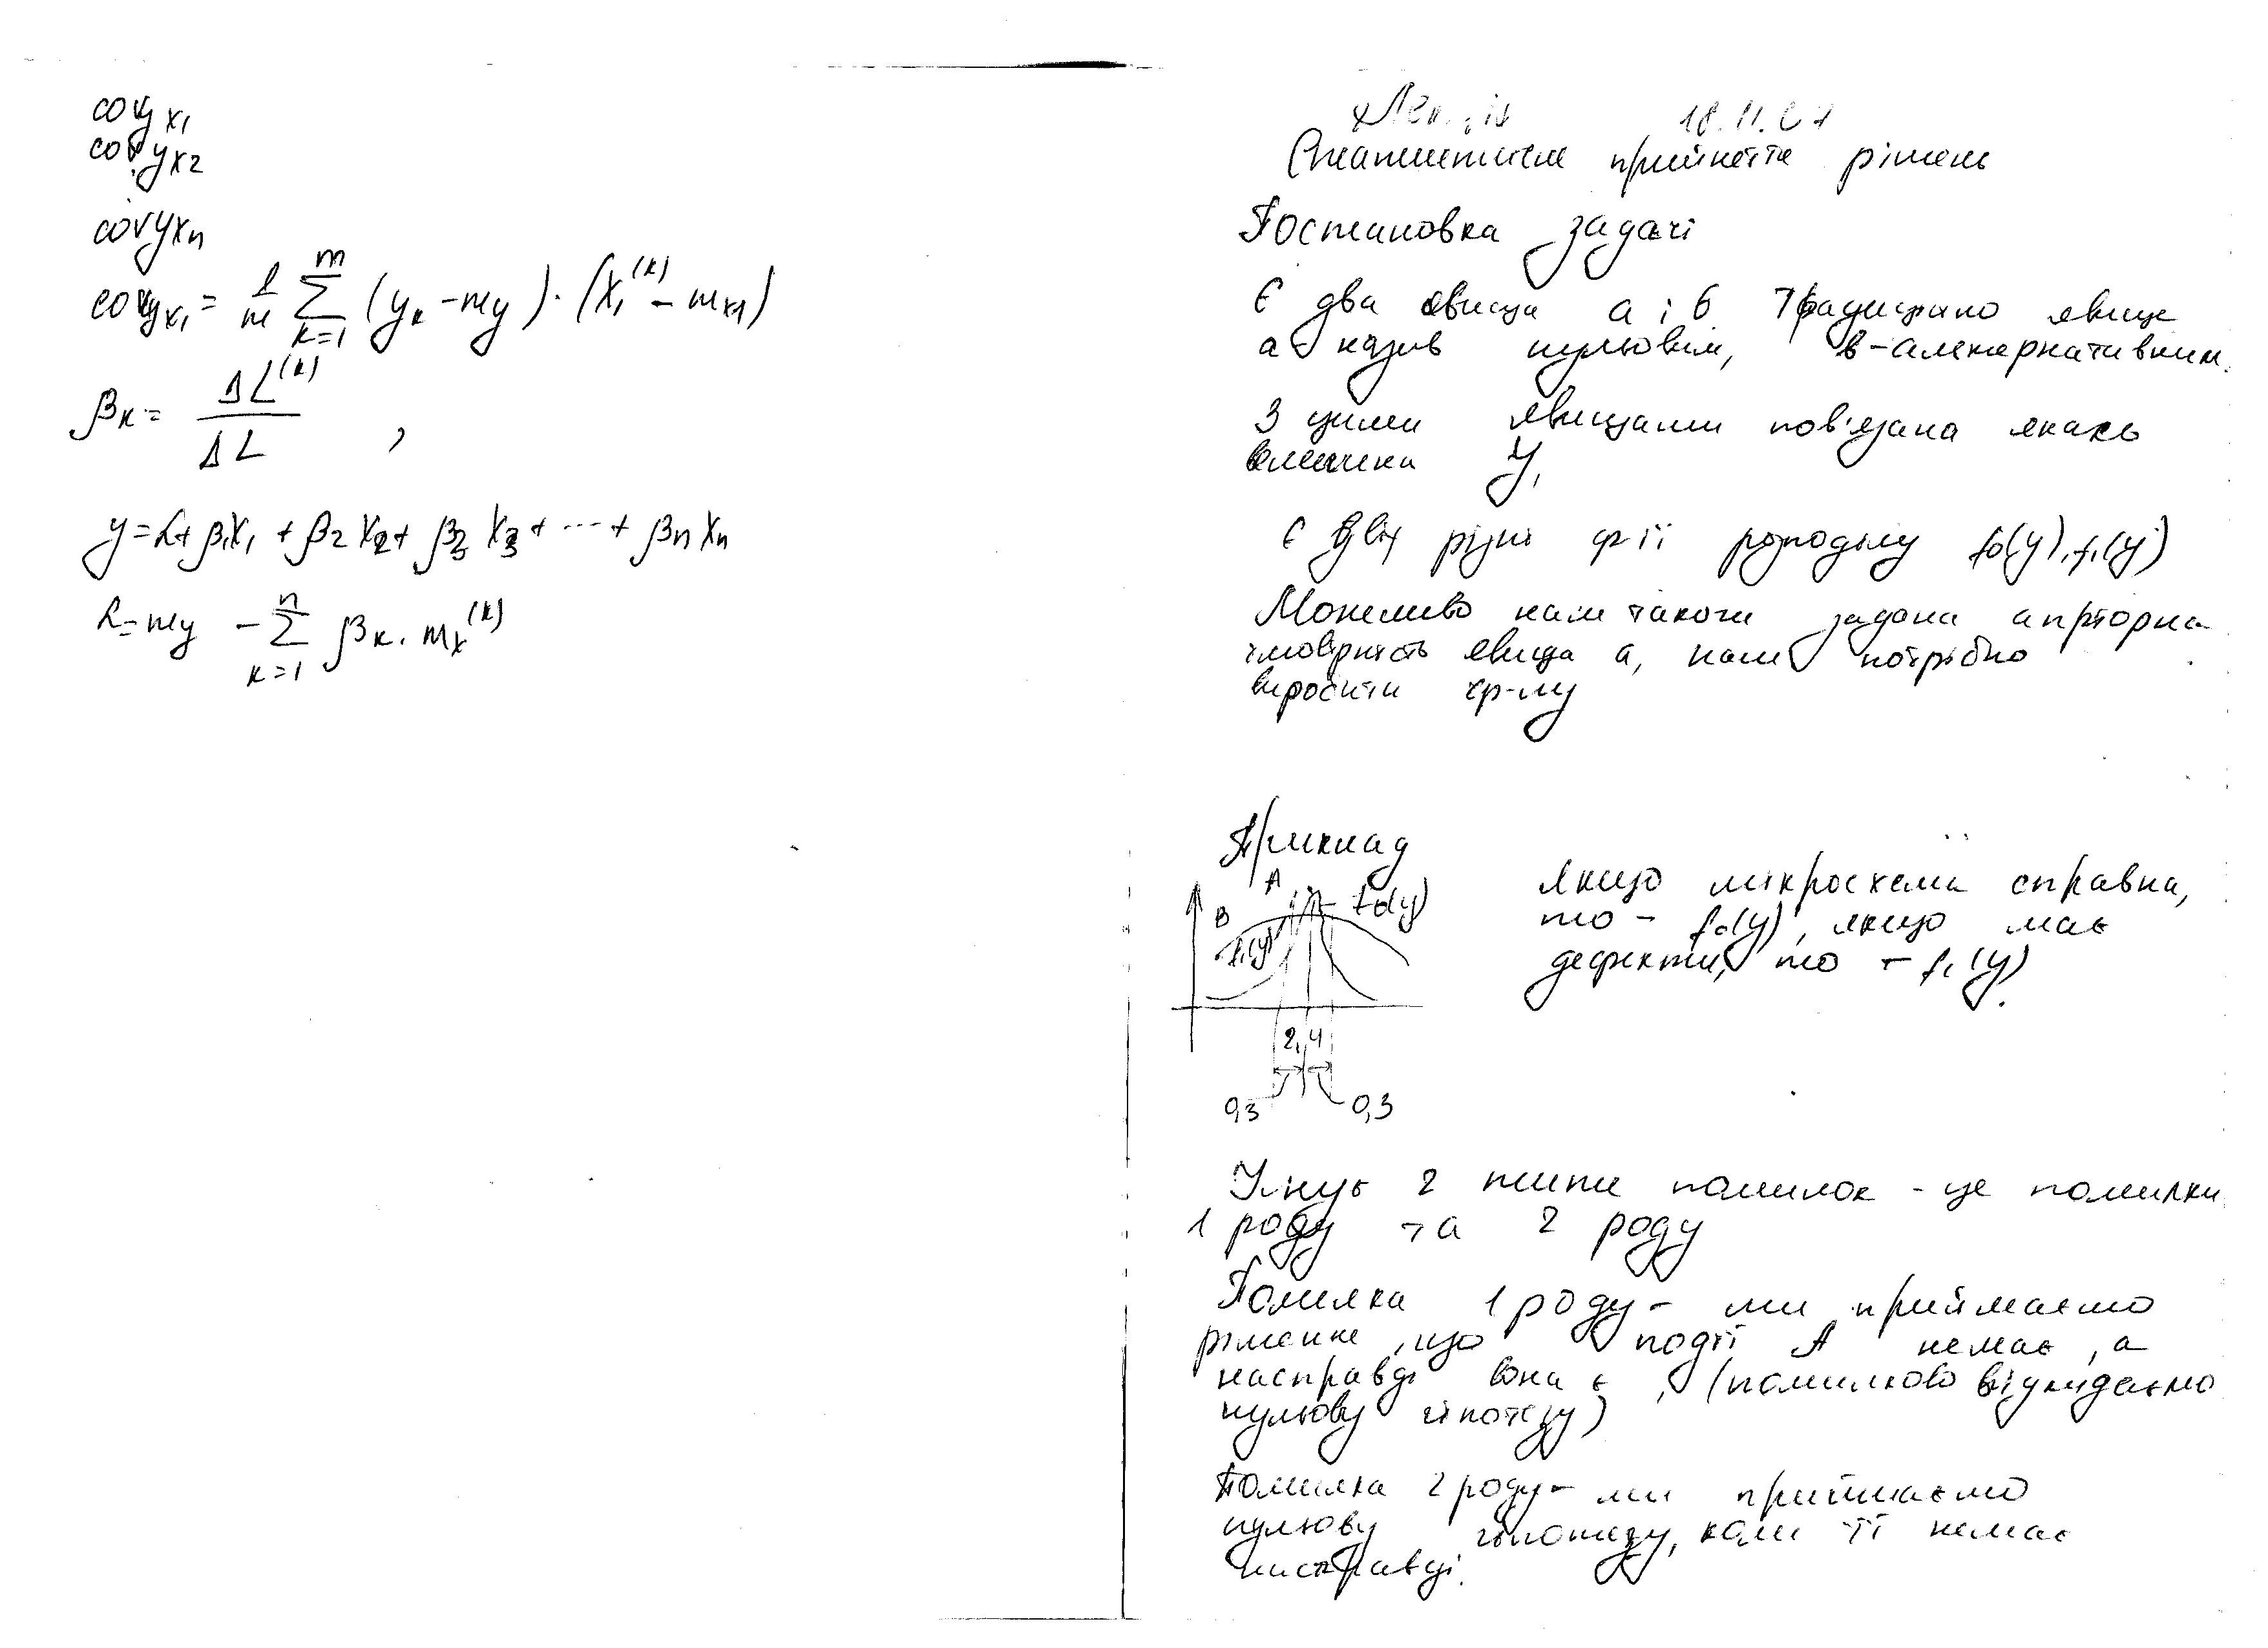 cov yx1
cov yx2
cov yxn
cov yx1 = 1/m ∑ k=1 m (yk - my) · (x1^(k) - mx1)
βk = ΔL^(k) / ΔL ,
y = α + β1x1 + β2x2 + β3x3 + ... + βnxn
α = my - ∑ k=1 n βk · mx^(k)
Лекція 18.11.07
Статистичне прийняття рішень
Постановка задачі
Є два явища а і б Традиційно явище
а назив нульовим, в - альтернативним.
З цими явищами пов'язана якась
величина y,
є дві різні ф-ії розподілу f0(y), f1(y)
Можливо нам також задана апріорна
імовірність явища а, нам потрібно
виробити ф-лу
Приклад
A
B
f0(y)
f1(y)
2,4
0,3 0,3
Якщо мікросхема справна,
то - f0(y), якщо має
дефекти, то - f1(y).
Існує 2 типи помилок - це помилки
1 роду та 2 роду
Помилка 1 роду - ми приймаємо
рішення, що події А немає, а
насправді вона є, (помилково відкидаємо
нульову гіпотезу)
Помилка 2 роду - ми приймаємо
нульову гіпотезу, коли її немає
насправді.